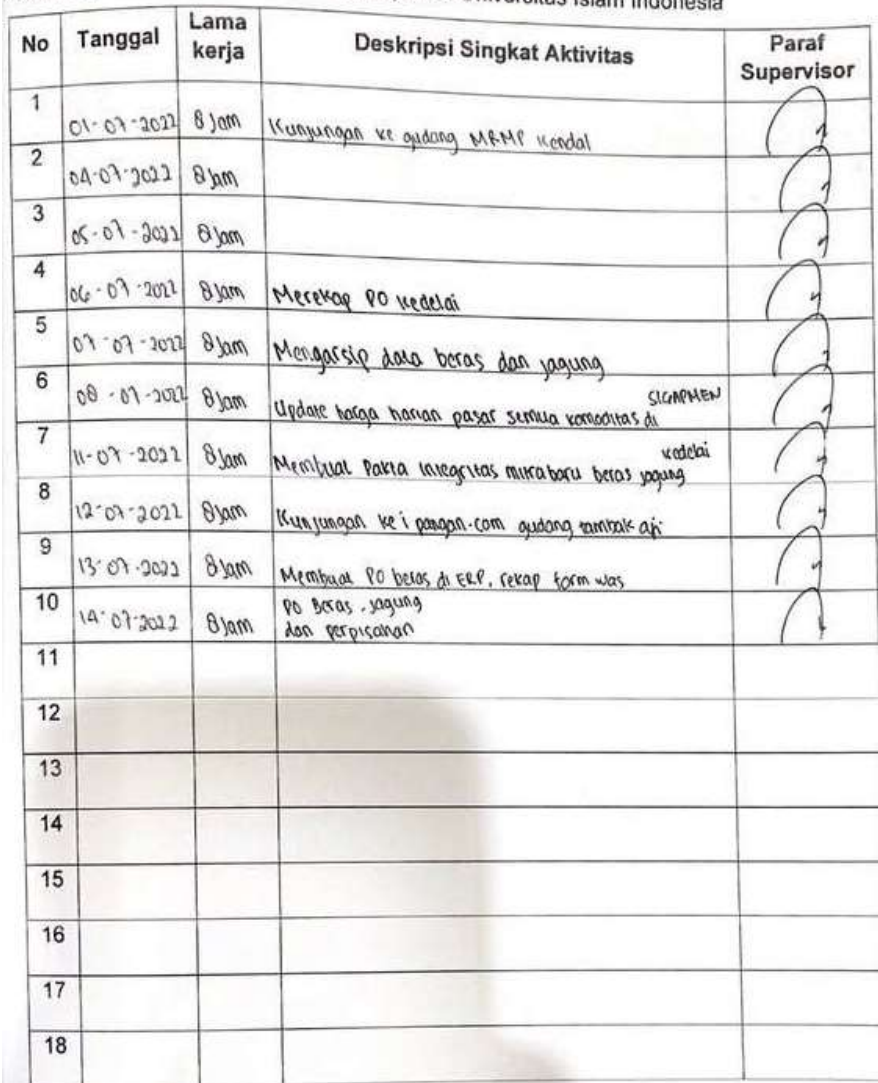 Universitas Islam Indonesia
No Tanggal Lama kerja Deskripsi Singkat Aktivitas Paraf Supervisor
1 01-07-2022 8 Jam Kunjungan ke gudang MRMP Kendal
2 04-07-2022 8 Jam
3 05-07-2022 8 Jam
4 06-07-2022 8 Jam Merekap PO kedelai
5 07-07-2022 8 Jam Mengarsip data beras dan jagung
6 08-07-2022 8 Jam Update harga harian pasar semua komoditas di SIGAPMEN
7 11-07-2022 8 Jam Membuat Pakta integritas mitra baru beras jagung kedelai
8 12-07-2022 8 Jam Kunjungan ke i pangan.com gudang tambak aji
9 13-07-2022 8 Jam Membuat PO beras di ERP, rekap form was
10 14-07-2022 8 Jam PO Beras, jagung
dan perpisahan
11
12
13
14
15
16
17
18